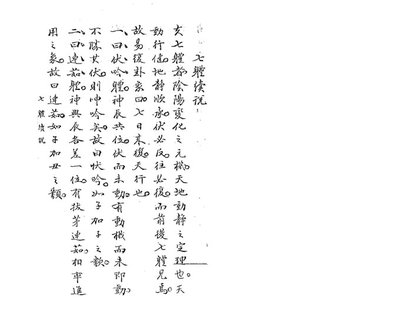 七體續說
玄七體都陰陽變化之元機天地動靜之定理也。天
動行健地靜順承伏必反往必復而前後七體見焉
故易復卦彖曰七日來復天行也
一曰伏吟體神辰共位伏而未動。有動機而未即動
不勝其伏則呻吟矣故曰伏吟。如子加子之類。
二曰連茹體。神與辰各差一位。有拔茅連茹。相率進
用之象。故曰連茹。如子加丑之類。
七體續說